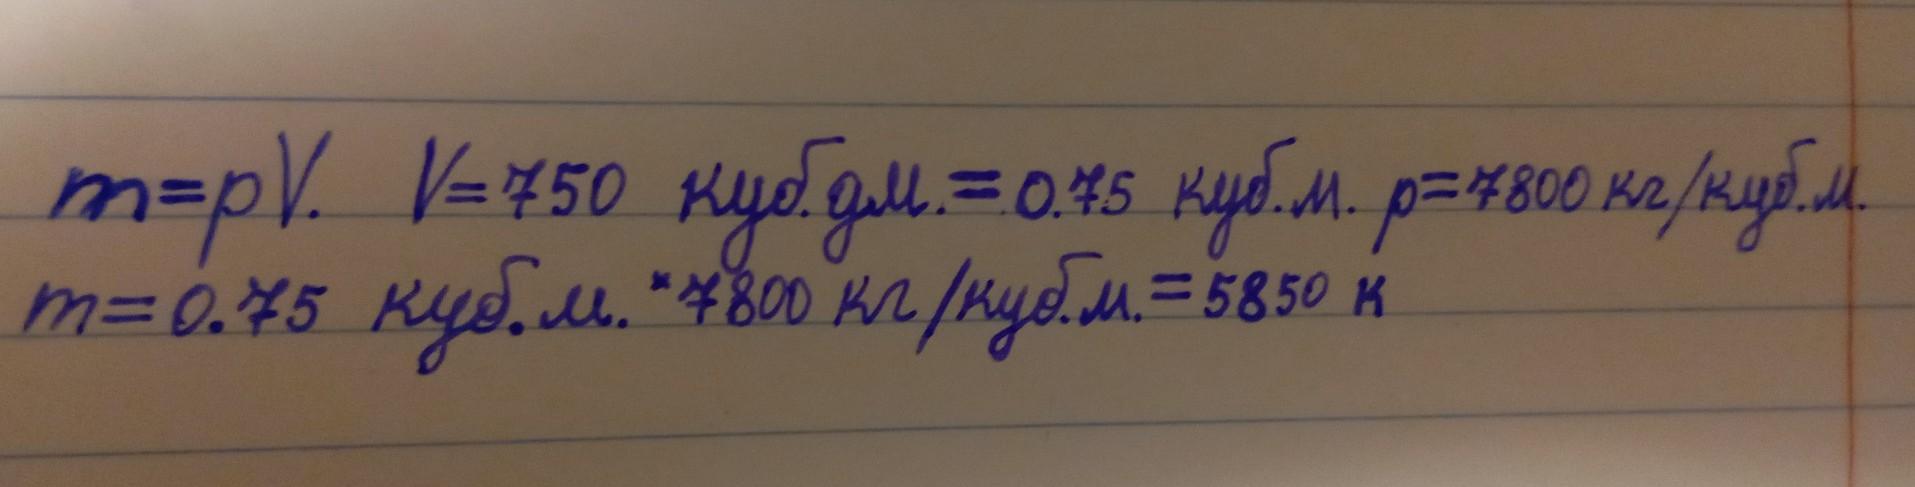 m=pV. V=750 куб.дм.=0.75 куб.м. p=7800 кг/куб.м.
m=0.75 куб.м.*7800 кг/куб.м.=5850 к